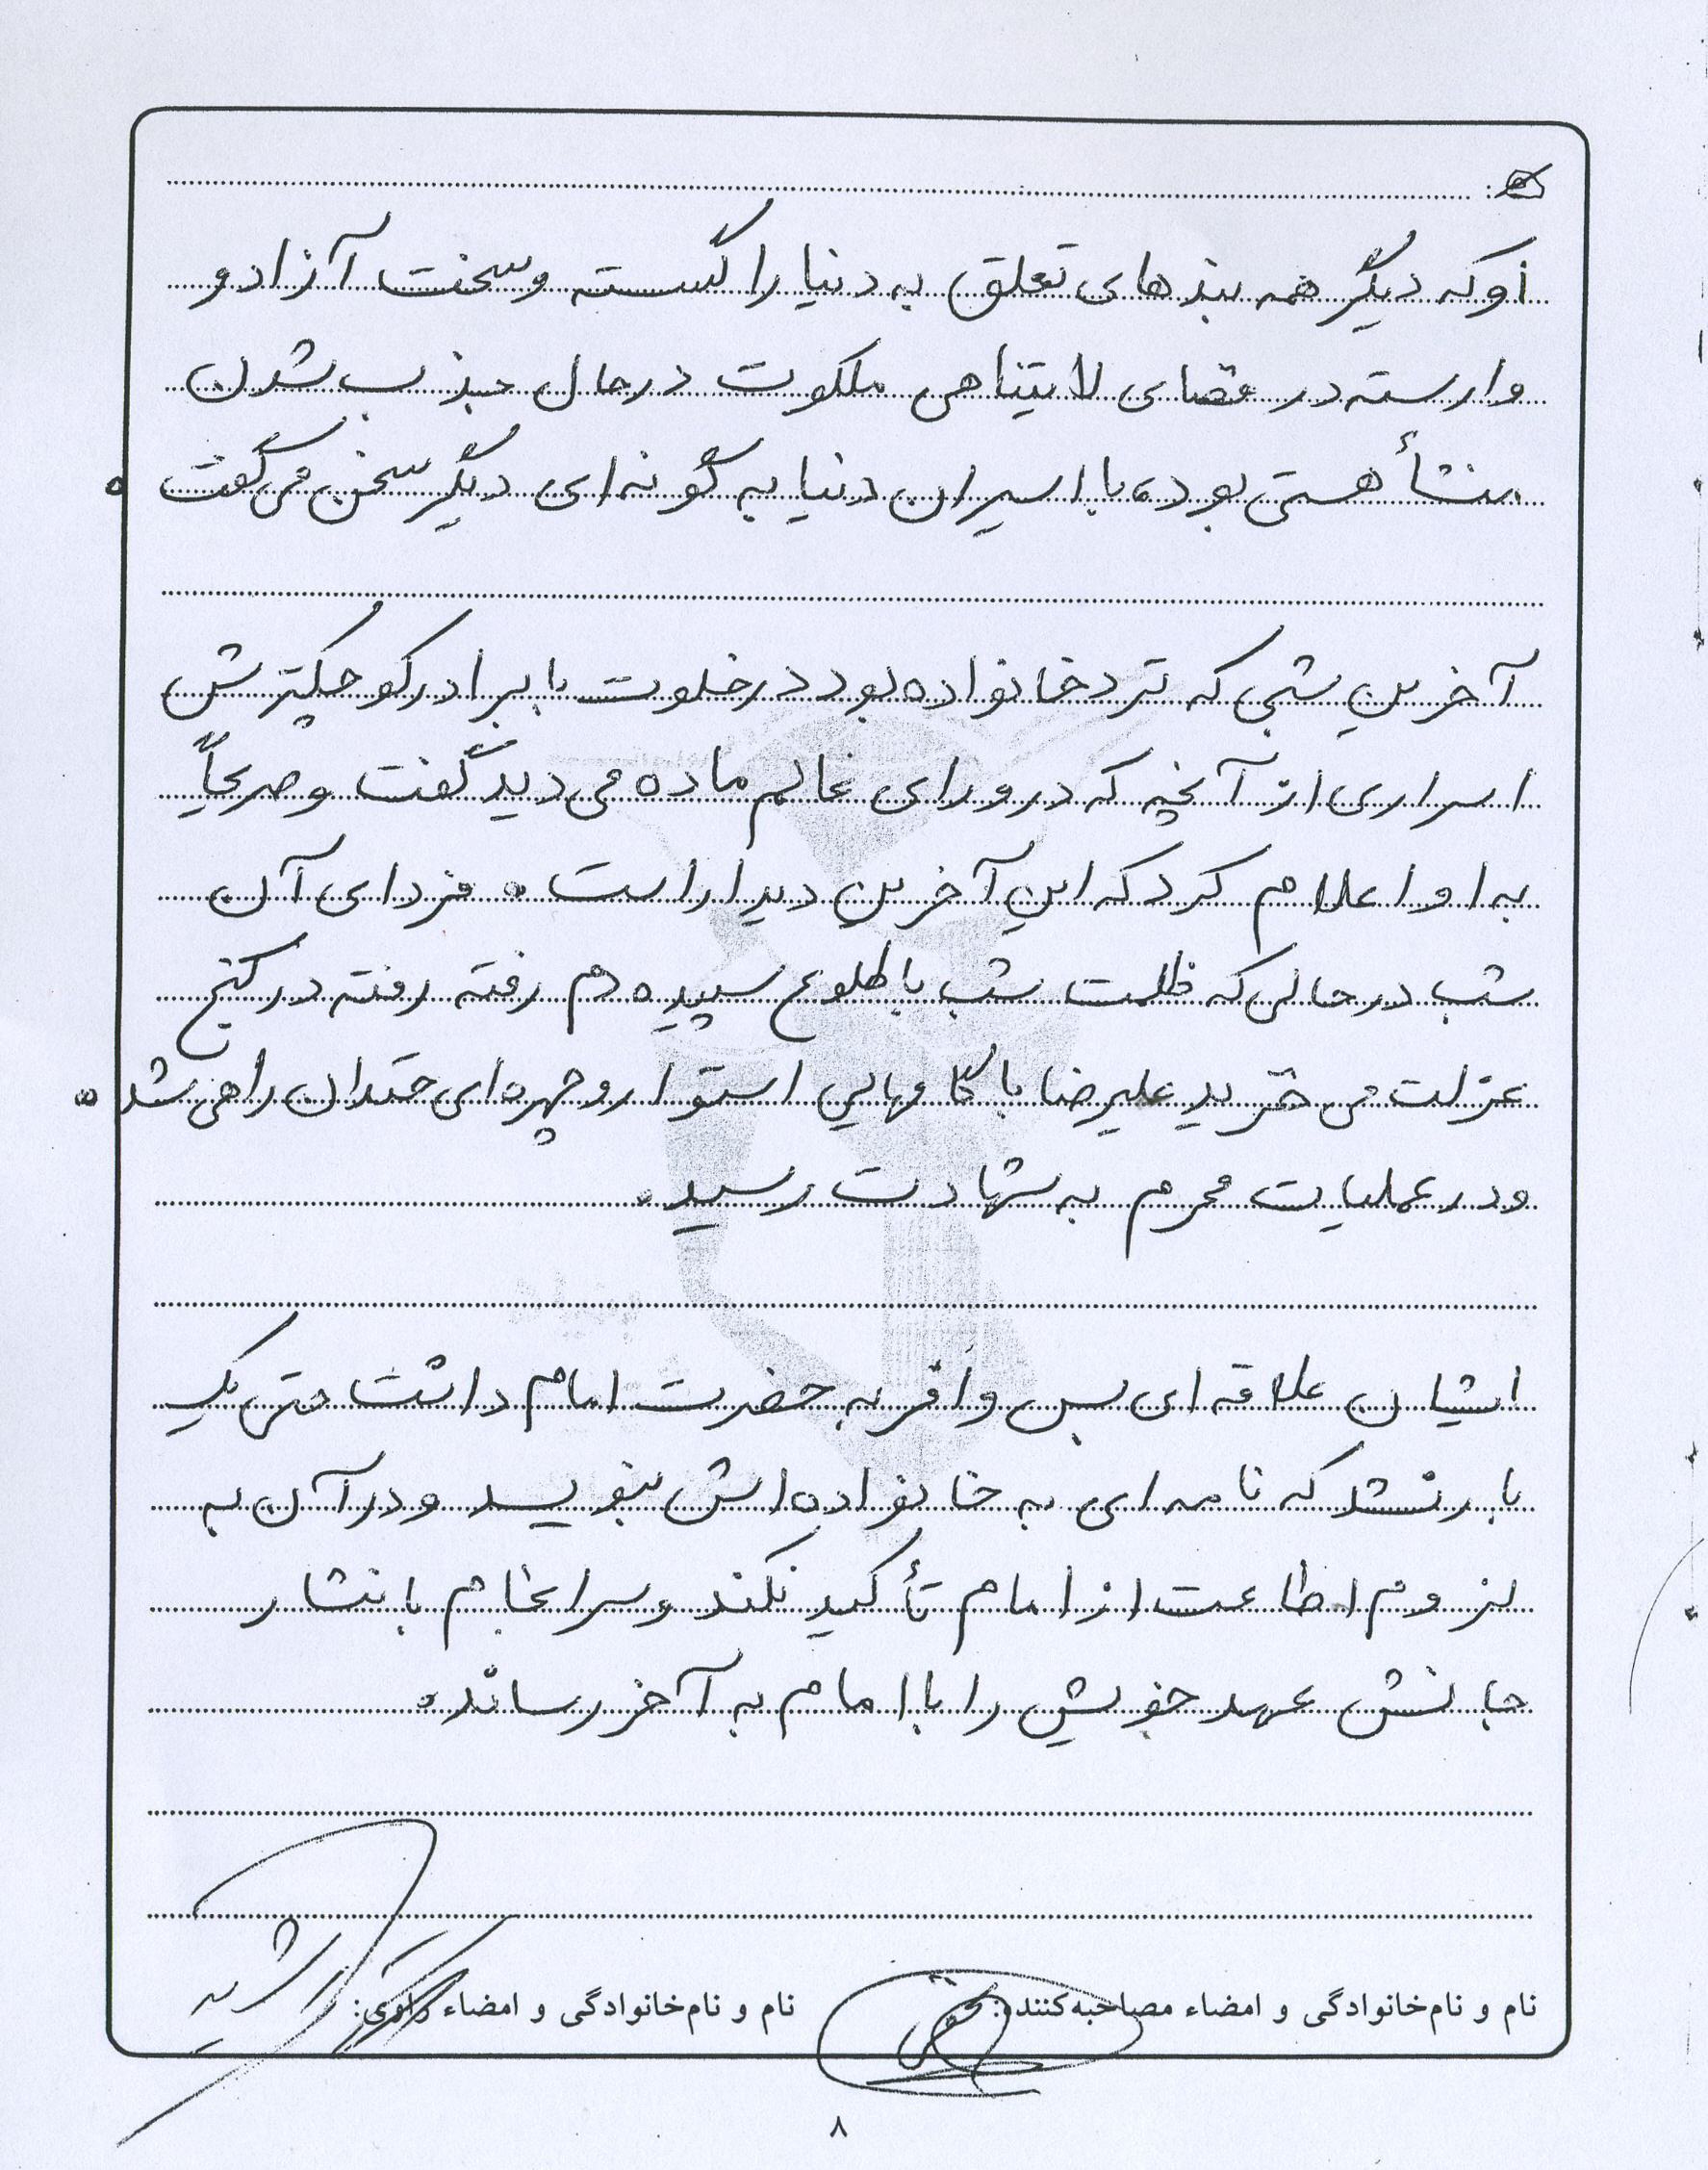 او که دیگر همه بندهای تعلق به دنیا را گسسته و سخت آزاد و
وارسته در فضای لایتناهی ملکوت در حال جذب شدن
منشأ هستی بوده با اسیران دنیا به گونه ای دیگر سخن می گفت.
آخرین شبی که نزد خانواده بود در خلوت با برادر کوچکترش
اسراری از آنچه که در ورای عالم ماده می دید گفت و صریحاً
به او اعلام کرد که این آخرین دیدار است. فردای آن
شب در حالی که ظلمت شب با طلوع سپیده دم رفته رفته در کنج
عزلت می خزید علیرضا با گامهایی استوار و چهره ای خندان راهی شد.
و در عملیات محرم به شهادت رسید.
ایشان علاقه ای بس وافر به حضرت امام داشت حتی یک
بار نشد که نامه ای به خانواده اش بنویسد و در آن به
لزوم اطاعت از امام تأکید نکند و سرانجام با نثار
جانش عهد خویش را با امام به آخر رساند.
نام و نام‌خانوادگی و امضاء مصاحبه‌کننده:
نام و نام‌خانوادگی و امضاء راوی:
۸